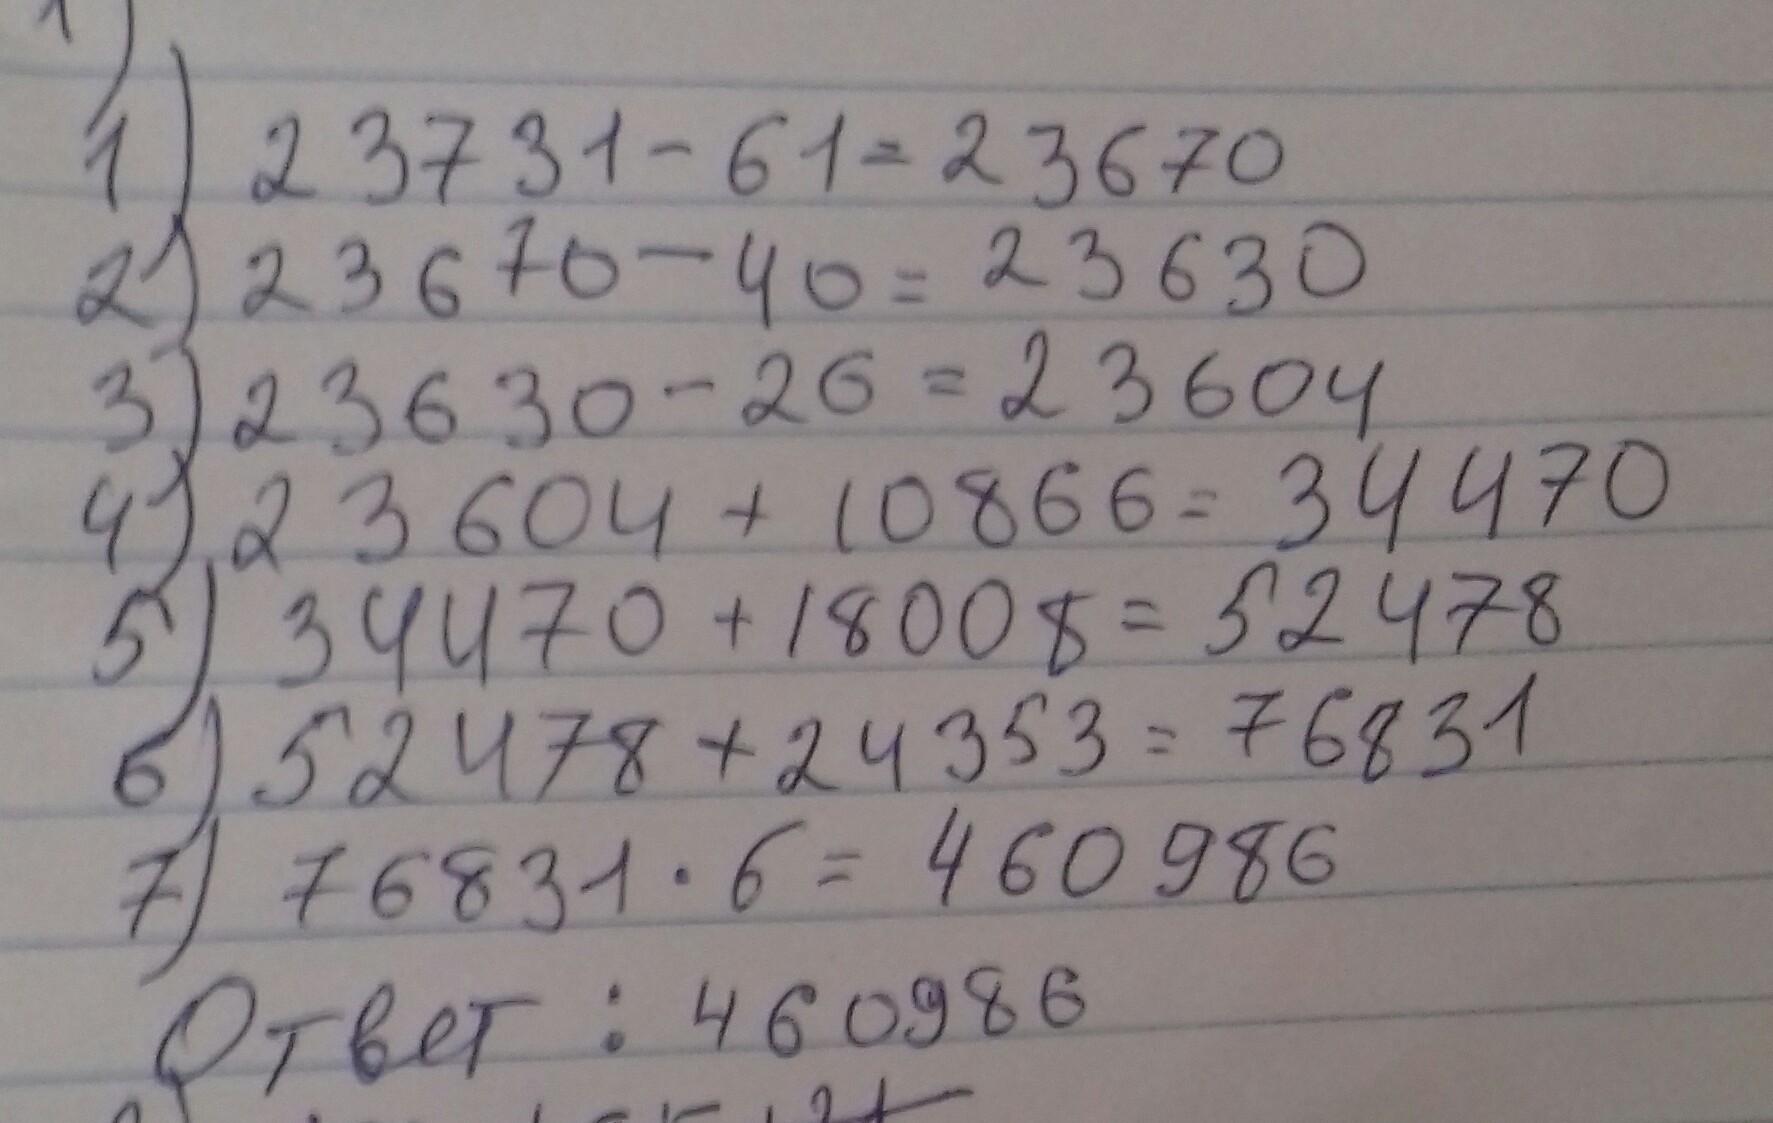 1)
1) 23731-61=23670
2) 23670-40=23630
3) 23630-26=23604
4) 23604+10866=34470
5) 34470+18008=52478
6) 52478+24353=76831
7) 76831·6=460986
Ответ: 460986